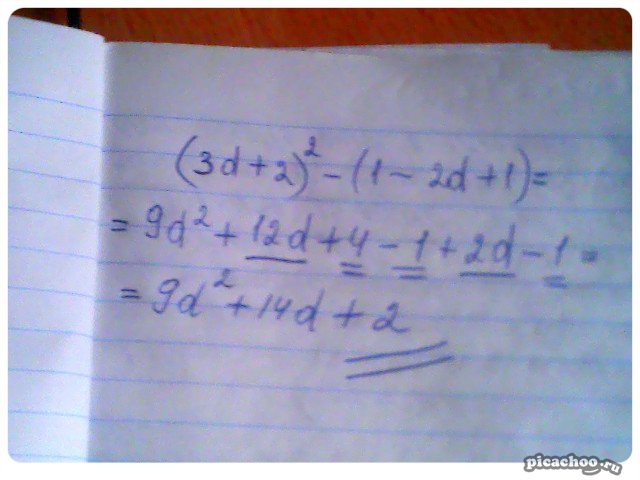 (3d+2)² - (1 - 2d + 1) =
= 9d² + 12d + 4 - 1 + 2d - 1 =
= 9d² + 14d + 2
picachoo.ru